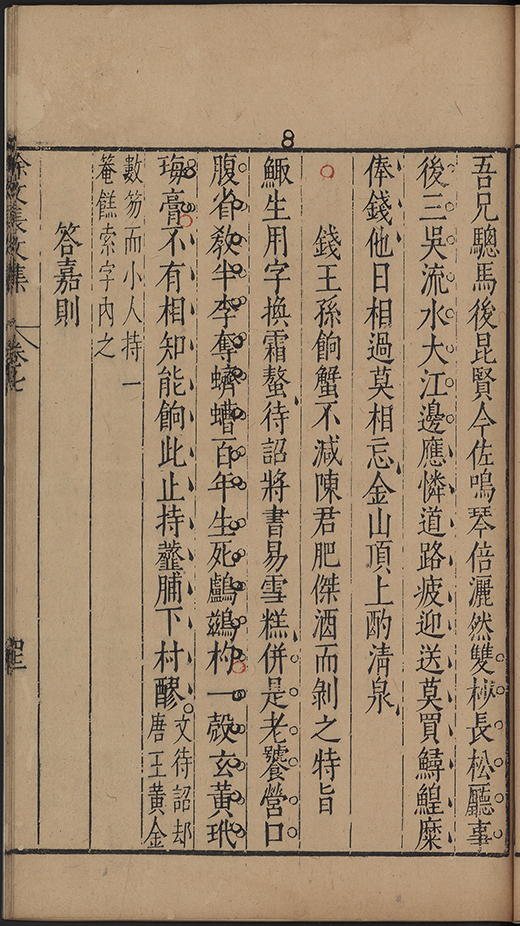 8
吾兄驄馬後昆賢今佐鳴琴倍灑然雙長松廳事
後三吳流水大江邊應憐道路疲迎送莫買鱘鰉糜
俸錢他日相過莫相忘金山頂上酌清泉
錢王孫餉蟹不減陳君肥傑酒而剝之特旨
鯫生用字換霜螯待詔將書易雪糕併是老饕營口
腹省教半李奪蠐螬百年生死鸕鶿杓一殼玄黃玳
瑁膏不有相知能餉此止持虀脯下村醪
文待詔却
唐王黃金
數笏而小人持一
索字內之
答嘉則
徐文長文集
卷七